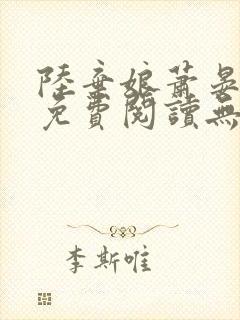 陸棄娘蕭晏
免費閱讀無
李斯唯